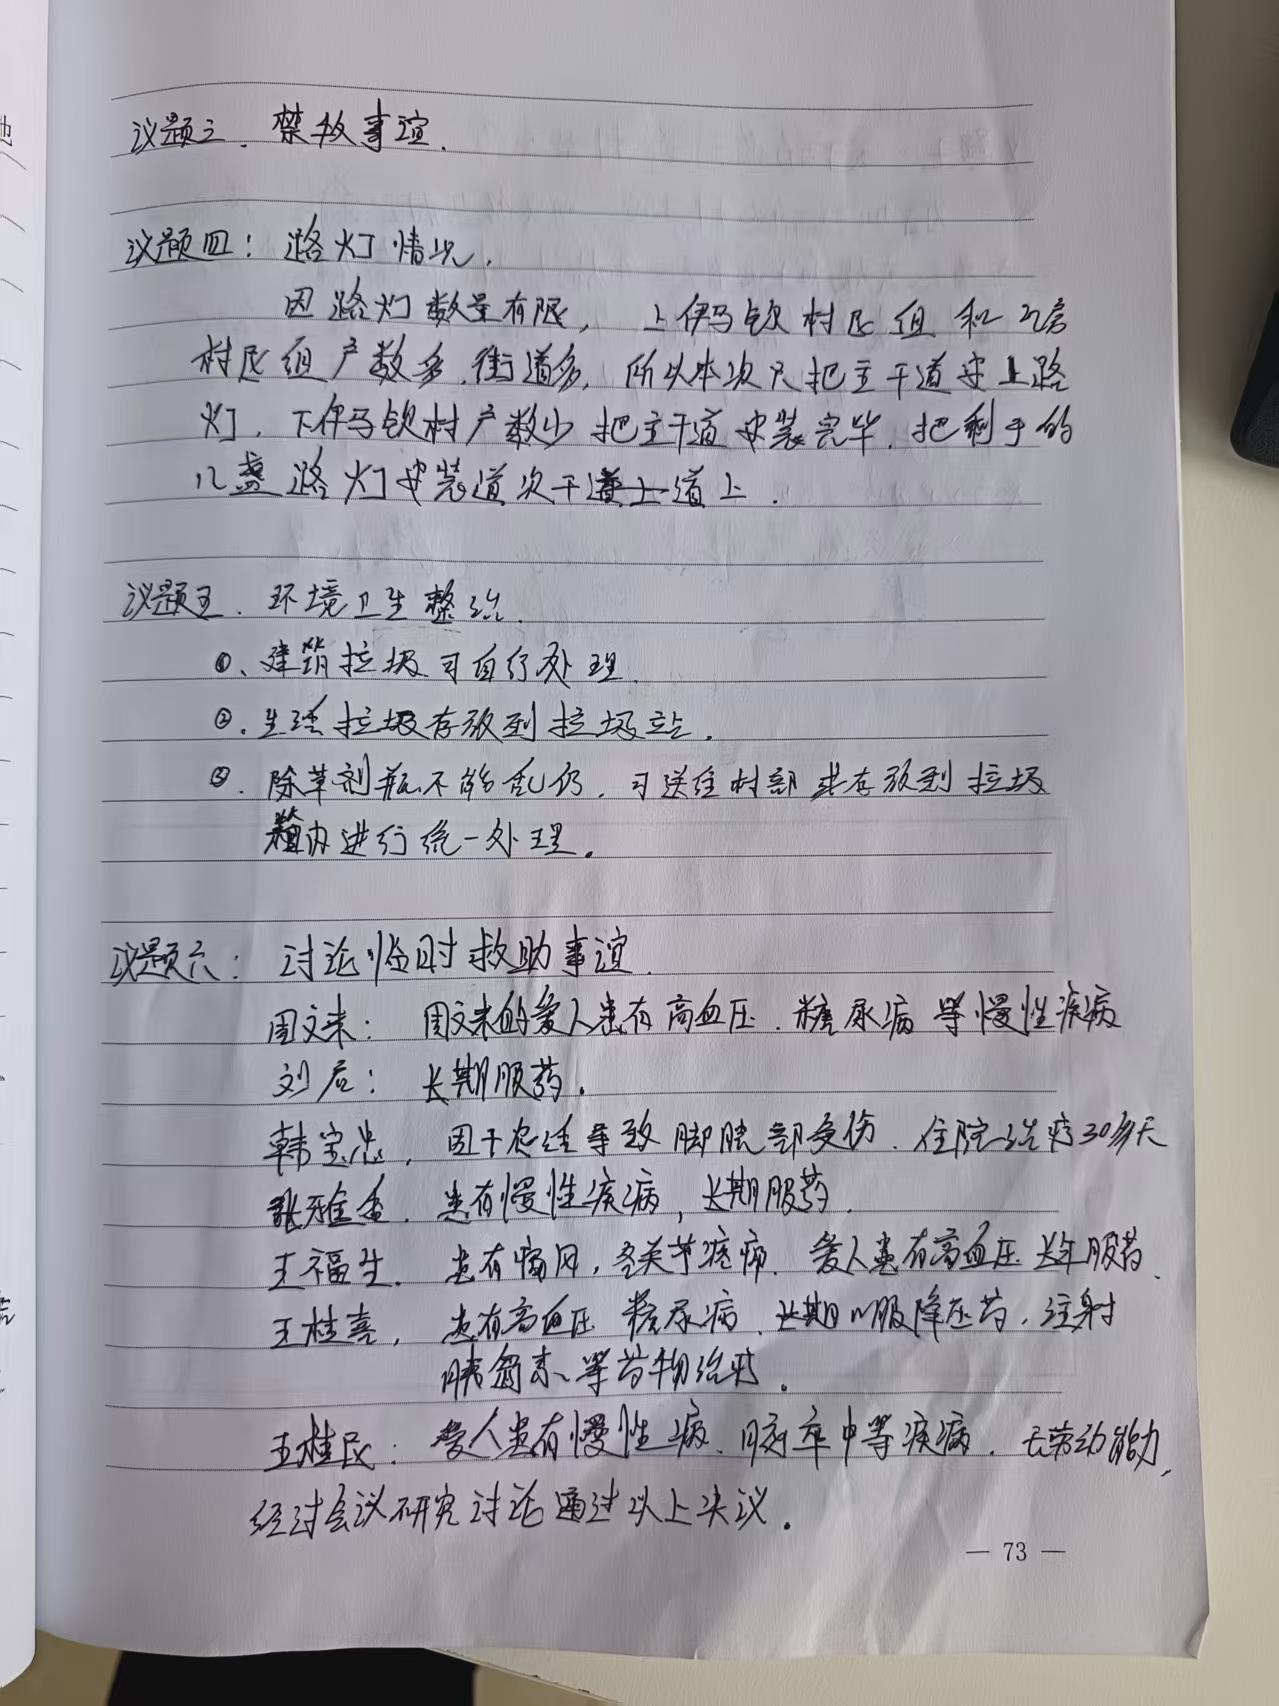 议题三．禁牧事谊．
议题四：路灯情况．
因路灯数量有限，上伊马钦村民组和瓦房
村民组户数多．街道多，所以本次只把主干道安上路
灯．下伊马钦村户数少把主干道安装完毕．把剩于的
几盏路灯安装道次干道上．
议题五．环境卫生整治．
①、建筑垃圾可自行处理．
②．生活垃圾存放到垃圾站．
③．除草剂瓶不能乱扔．可送往村部或存放到垃圾
箱内进行统一处理．
议题六：讨论临时救助事谊．
周文来：周文来的爱人患有高血压．糖尿病等慢性疾病
刘石：长期服药．
韩宝忠，因干农活导致脚腕部受伤．住院治疗30多天
张雅香．患有慢性疾病，长期服药．
王福生．患有痛风，各关节疼痛．爱人患有高血压长年服药．
王桂喜，患有高血压糖尿病．长期口服降压药．注射
胰岛素、等药物治疗．
王桂民：爱人患有慢性病．脑卒中等疾病．无劳动能力，
经过会议研究讨论通过以上决议．
— 73 —